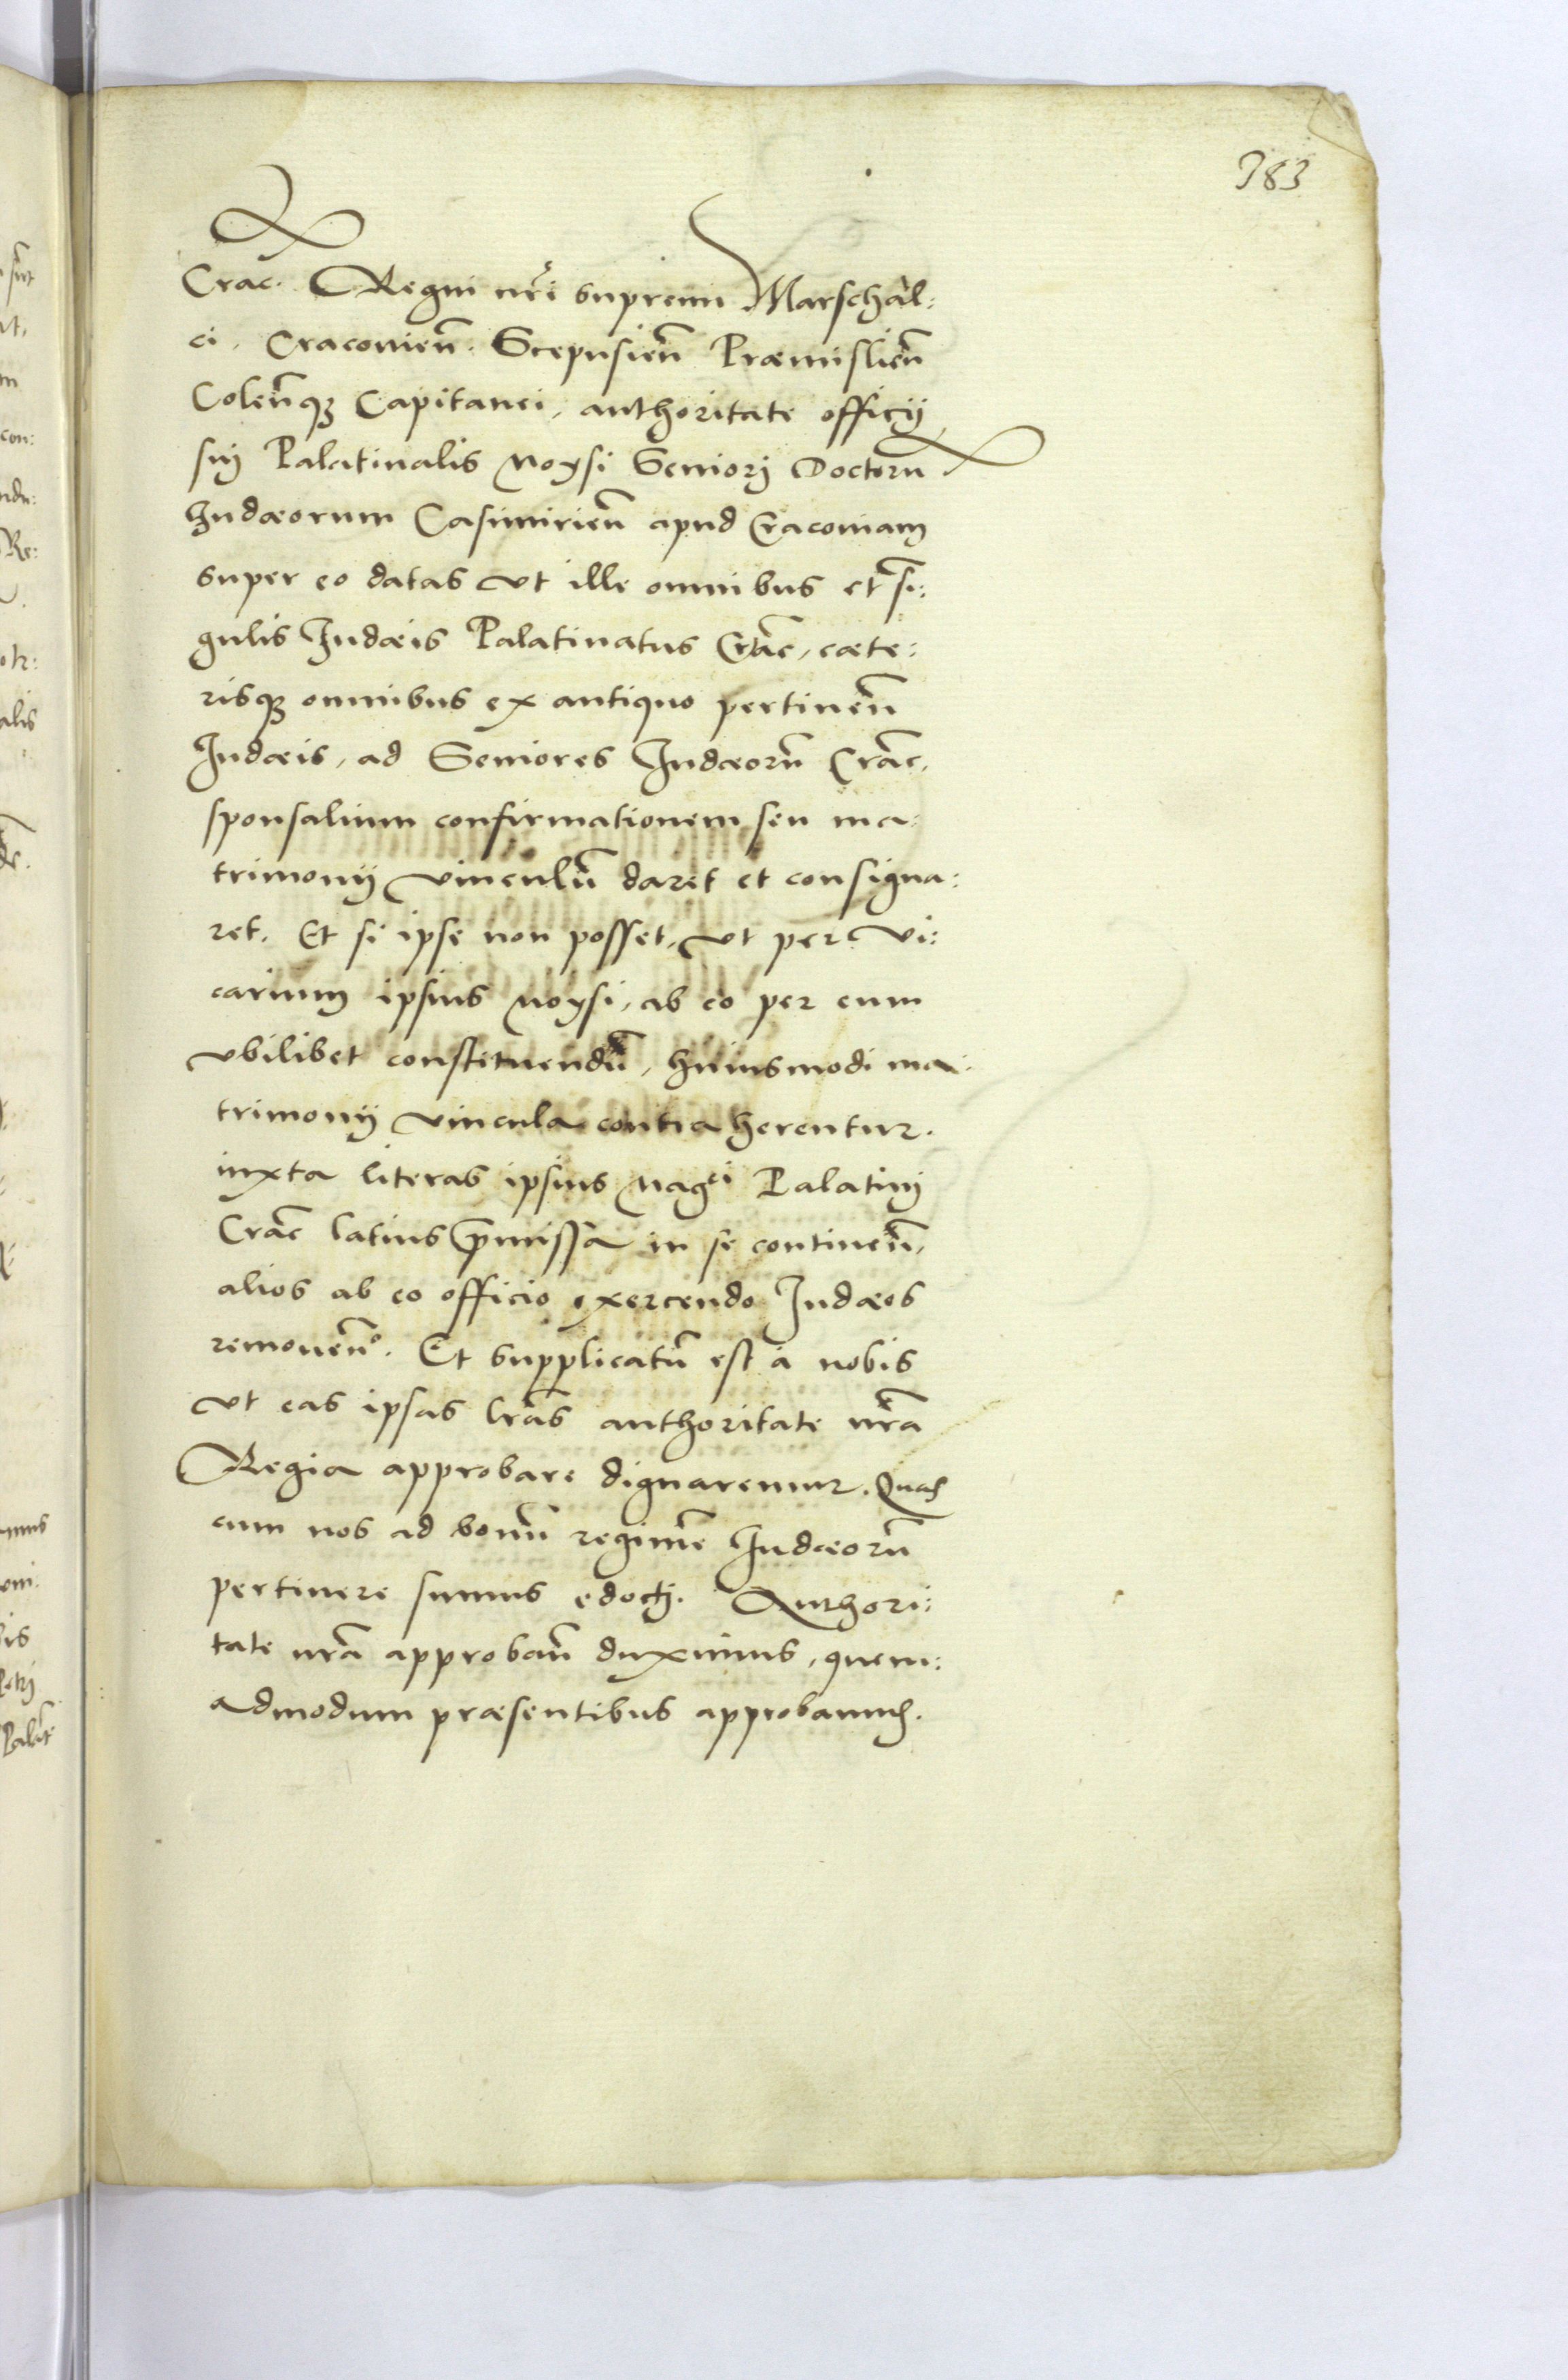 383
Crac. Regni nr̃i supremi Marschal:
ci, Cracovieñ. Scepusieñ Præmislieñ
Coleñq3 Capitanei, authoritate officij
sui Palatinalis Moysi Seniorj Doctorũ
Iudæorum Casimirieñ apud Cracouiam
super eo datas vt ille omnibus et sĩ:
gulis Iudæis Palatinatus Crac̃, cæte:
risq3 omnibus ex antiquo pertineñ
Iudæis, ad Seniores Iudæorũ Crac̃,
sponsalium confirmationem seu ma:
trimonij vinculũ daret et consigna:
ret. Et si ipse non posset, vt per vi:
carium ipsius Moysi, ab eo per eum
vbilibet constituendũ, huiusmodi ma:
trimonij vincula contraherentur.
iuxta literas ipsius Mag^ci Palatini
Crac̃ latius p̃missa in se contineñ,
alios ab eo officio exercendo Iudæos
remoueñ^o. Et supplicatũ est a nobis
vt eas ipsas lr̃as authoritate nr̃a
Regia approbare dignaremur. Quas
cum nos ad bonũ regimẽ Iudæorũ
pertinere sumus edoctj. Authori:
tate nr̃a approbañ duximus, quem:
admodum præsentibus approbamus.